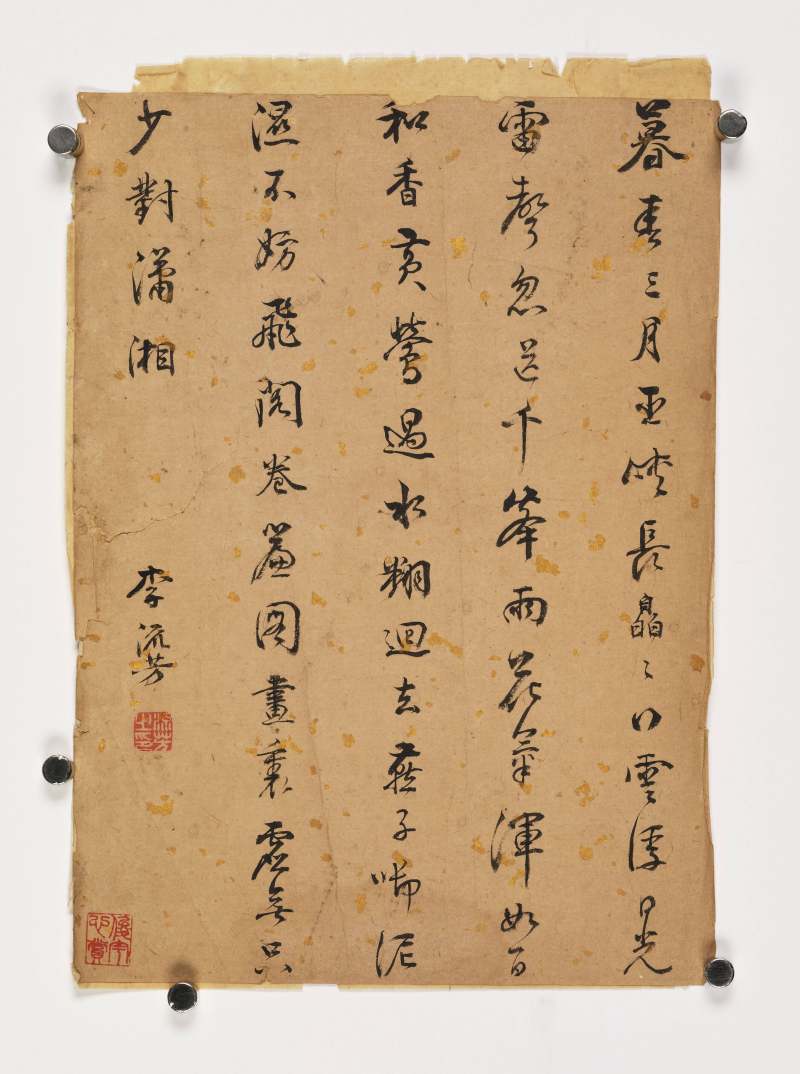 暮春三月巫峽長皛〻行雲浮日光
雷聲忽送千峯雨花氣渾如百
和香黃鶯過水翻迴去燕子啣泥
濕不妨飛閣卷簾圖畫裏虛無只
少對瀟湘
李流芳
流芳之印